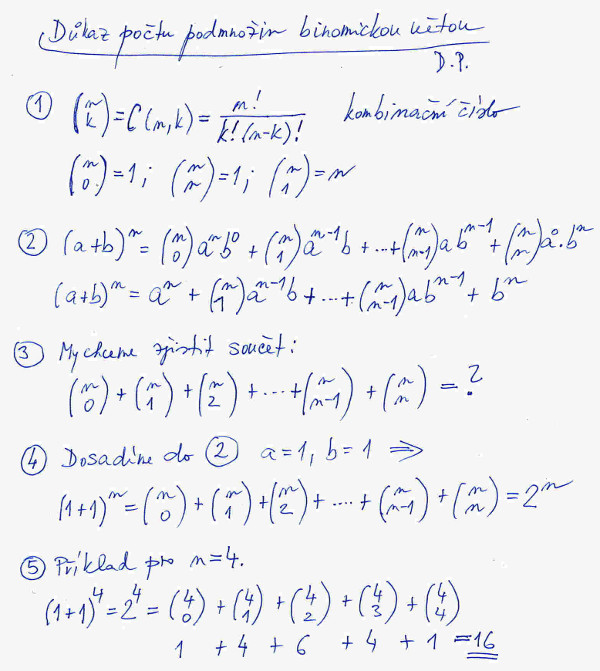 Důkaz počtu podmnožin binomickou větou
D.P.
① (n k) = C(n,k) = n! / k!(n-k)! kombinační číslo
(n 0) = 1; (n n) = 1; (n 1) = n
② (a+b)ⁿ = (n 0)aⁿb⁰ + (n 1)aⁿ⁻¹b + ... + (n n-1)abⁿ⁻¹ + (n n)a⁰·bⁿ
(a+b)ⁿ = aⁿ + (n 1)aⁿ⁻¹b + ... + (n n-1)abⁿ⁻¹ + bⁿ
③ My chceme zjistit součet:
(n 0) + (n 1) + (n 2) + ... + (n n-1) + (n n) = ?
④ Dosadíme do ② a=1, b=1 ⇒
(1+1)ⁿ = (n 0) + (n 1) + (n 2) + .... + (n n-1) + (n n) = 2ⁿ
⑤ Příklad pro n=4.
(1+1)⁴ = 2⁴ = (4 0) + (4 1) + (4 2) + (4 3) + (4 4)
1 + 4 + 6 + 4 + 1 = 16